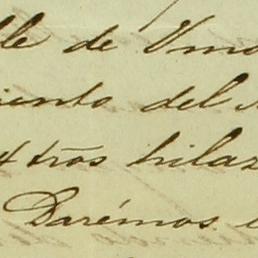 lle de Vmo
iento del
xtrôs hilaz
Darémos